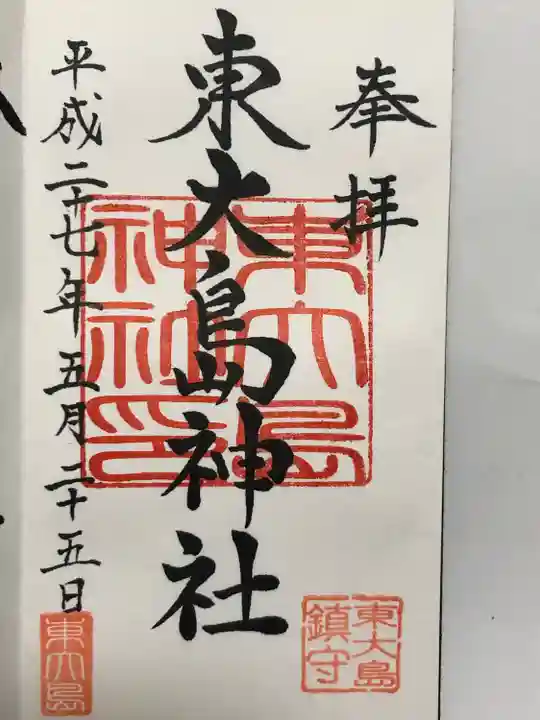 奉拝
東大島神社
平成二十七年五月二十五日
東大島
神社印
東大島
鎮守
東大島